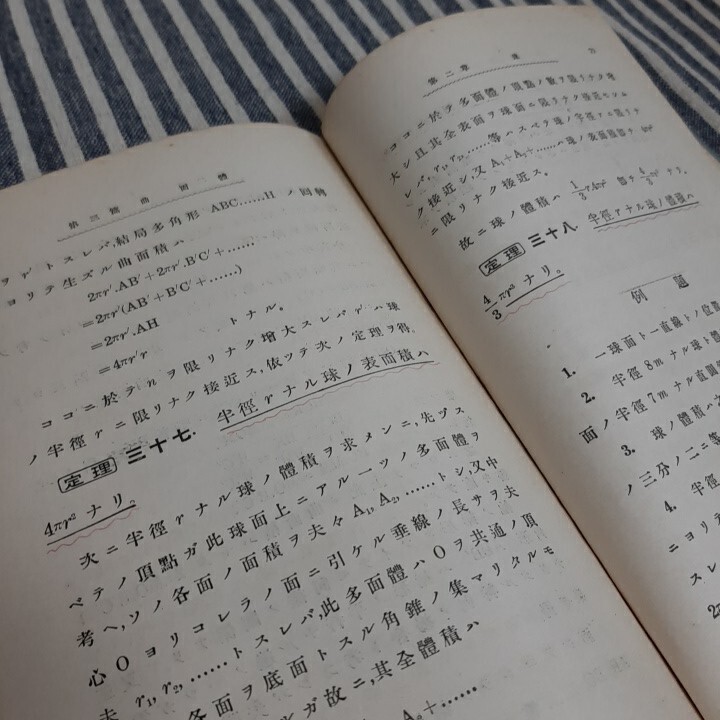 第三篇 曲面體
ヲ r′ トスレバ,結局多角形 ABC……H ノ回轉
ヨリテ生ズル曲面積ハ
2πr′.AB′+2πr′.B′C′+……
=2πr′(AB′+B′C′+……)
=2πr′.AH
=4πr′r トナル。
ココニ於テ n ヲ限リナク増大スレバ r′ ハ球
ノ半徑 r ニ限リナク接近ス,依ツテ次ノ定理ヲ得
定理 三十七. 半徑 r ナル球ノ表面積ハ
4πr² ナリ。
次ニ半徑 r ナル球ノ體積ヲ求メンニ,先ヅス
ベテノ頂點ガ此球面上ニアル一ツノ多面體ヲ
考ヘ,ソノ各面ノ面積ヲ夫々 A₁, A₂, ……トシ,又中
心 O ヨリコレラノ面ニ引ケル垂線ノ長サヲ夫
r₁, r₂, ……トスレバ,此多面體ハ O ヲ共通ノ頂
各面ヲ底面トスル角錐ノ集マリタルモ
ガ故ニ,其全體積ハ
第二章 球
ココニ於テ多面體ノ頂點ノ數ヲ限リナク增
大シ且其全表面ヲ球面ニ限リナク接近セシム
レバ, r₁, r₂, ……等ハスベテ球ノ半徑 r ニ限リナ
ク接近シ,又 A₁+A₂+……ハ球ノ表面積卽チ 4πr²
ニ限リナク接近ス。
故ニ球ノ體積ハ 1/3 r.4πr² 卽チ 4/3 πr³ ナリ。
定理 三十八. 半徑 r ナル球ノ體積ハ
4/3 πr³ ナリ。
例題
1. 一球面ト一直線トノ位置
2. 半徑 8m ナル球ト體
面ノ半徑 7m ナル直圓
3. 球ノ體積ハ
ノ三分ノ二ニ等
4. 半徑
ニヨリテ
スレ